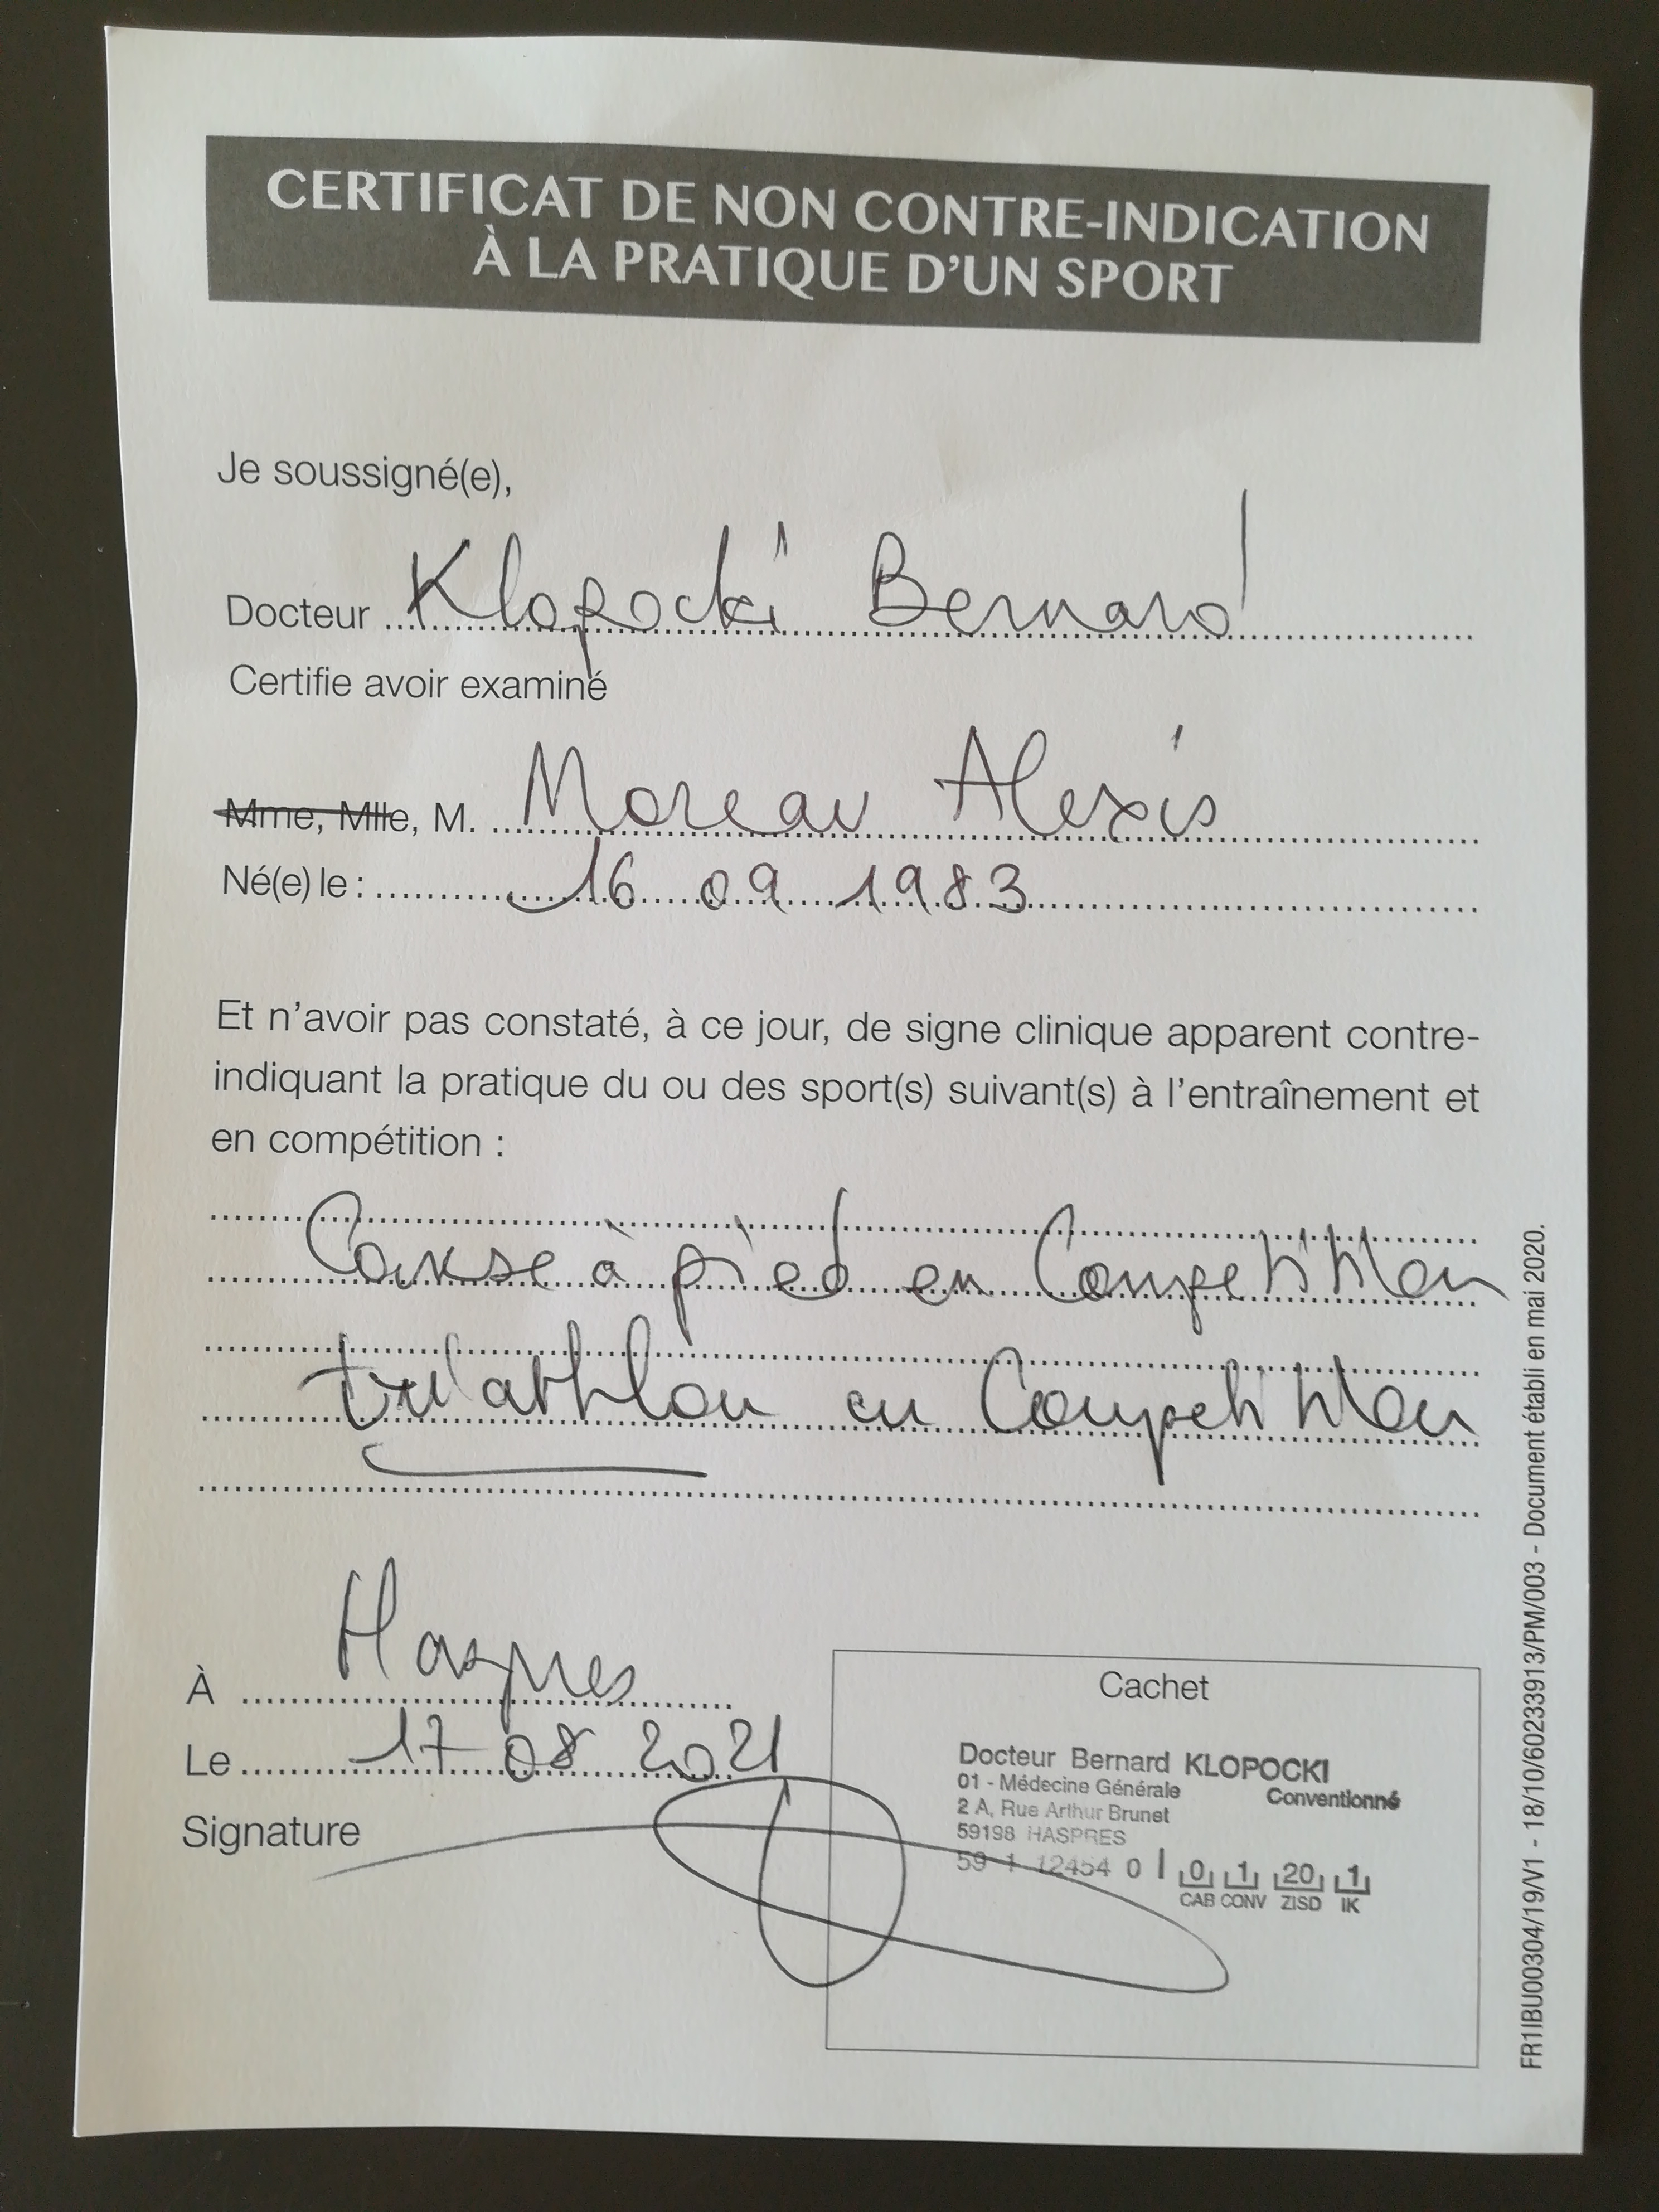 CERTIFICAT DE NON CONTRE-INDICATION
À LA PRATIQUE D'UN SPORT
Je soussigné(e),
Docteur Klopocki Bernard
Certifie avoir examiné
Mme, Mlle, M. Moreau Alexis
Né(e) le : 16 09 1983
Et n'avoir pas constaté, à ce jour, de signe clinique apparent contre-
indiquant la pratique du ou des sport(s) suivant(s) à l'entraînement et
en compétition :
Course à pied en Competition
triathlon en Competition
À Haspres
Le 17 08 2021
Signature
Cachet
Docteur Bernard KLOPOCKI
01 - Médecine Générale Conventionné
2 A, Rue Arthur Brunet
59198 HASPRES
59 1 12454 0 | 0 1 20 1
CAB CONV ZISD IK
FR1IBU00304/19/V1 - 18/10/60233913/PM/003 - Document établi en mai 2020.